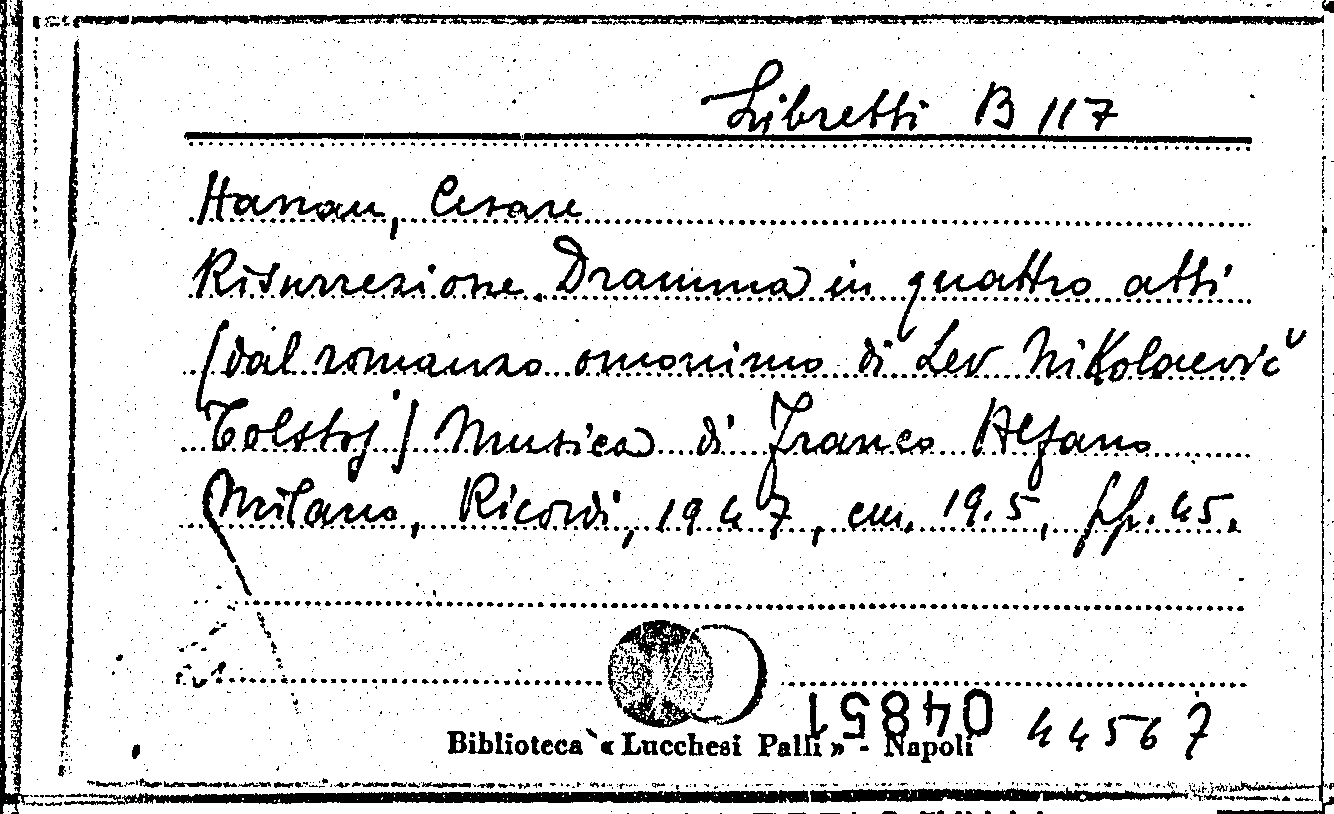 Libretti B 117
Hanau, Cesare
Risurrezione. Dramma in quattro atti
(dal romanzo omonimo di Lev Nikolaevič
Tolstoj) Musica di Franco Alfano
Milano, Ricordi, 1947, cm. 19.5, pp. 45.
04851
44567
Biblioteca «Lucchesi Palli» - Napoli